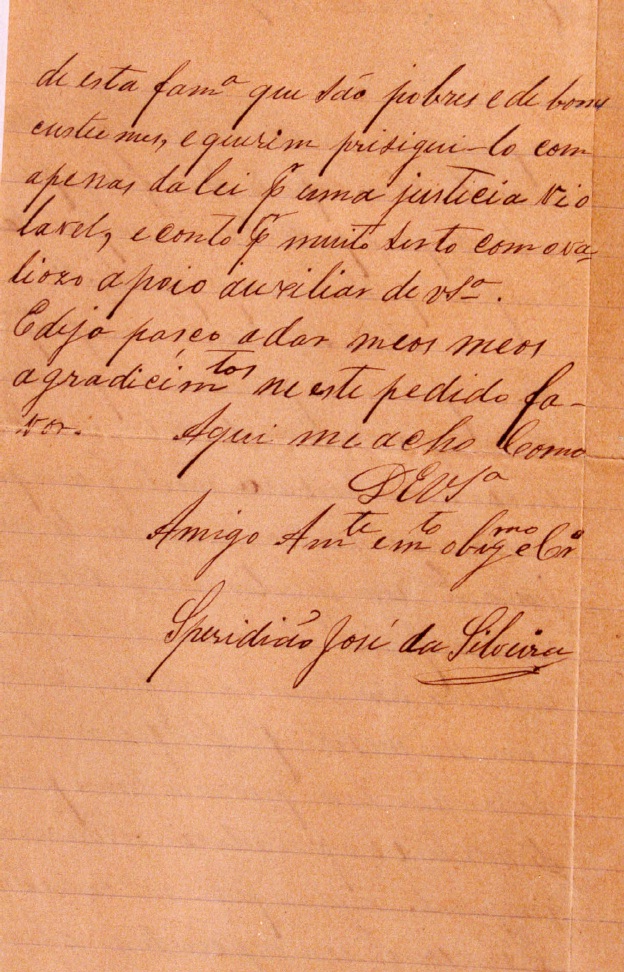 de esta famª que são pobres e de bons
custumes, e querim prisigui-lo com
apenas da lei p uma justicia vio
lavel, e conto p muito serto com o va
liozo apoio auxiliar de vSª.
Edija paseo a dar meos meos
agradicimtos neste pedido fa-
vor. Aqui me acho Como
DEVSª
Amigo Amte emto obrigmo e Crº
Speridião José da Silveira